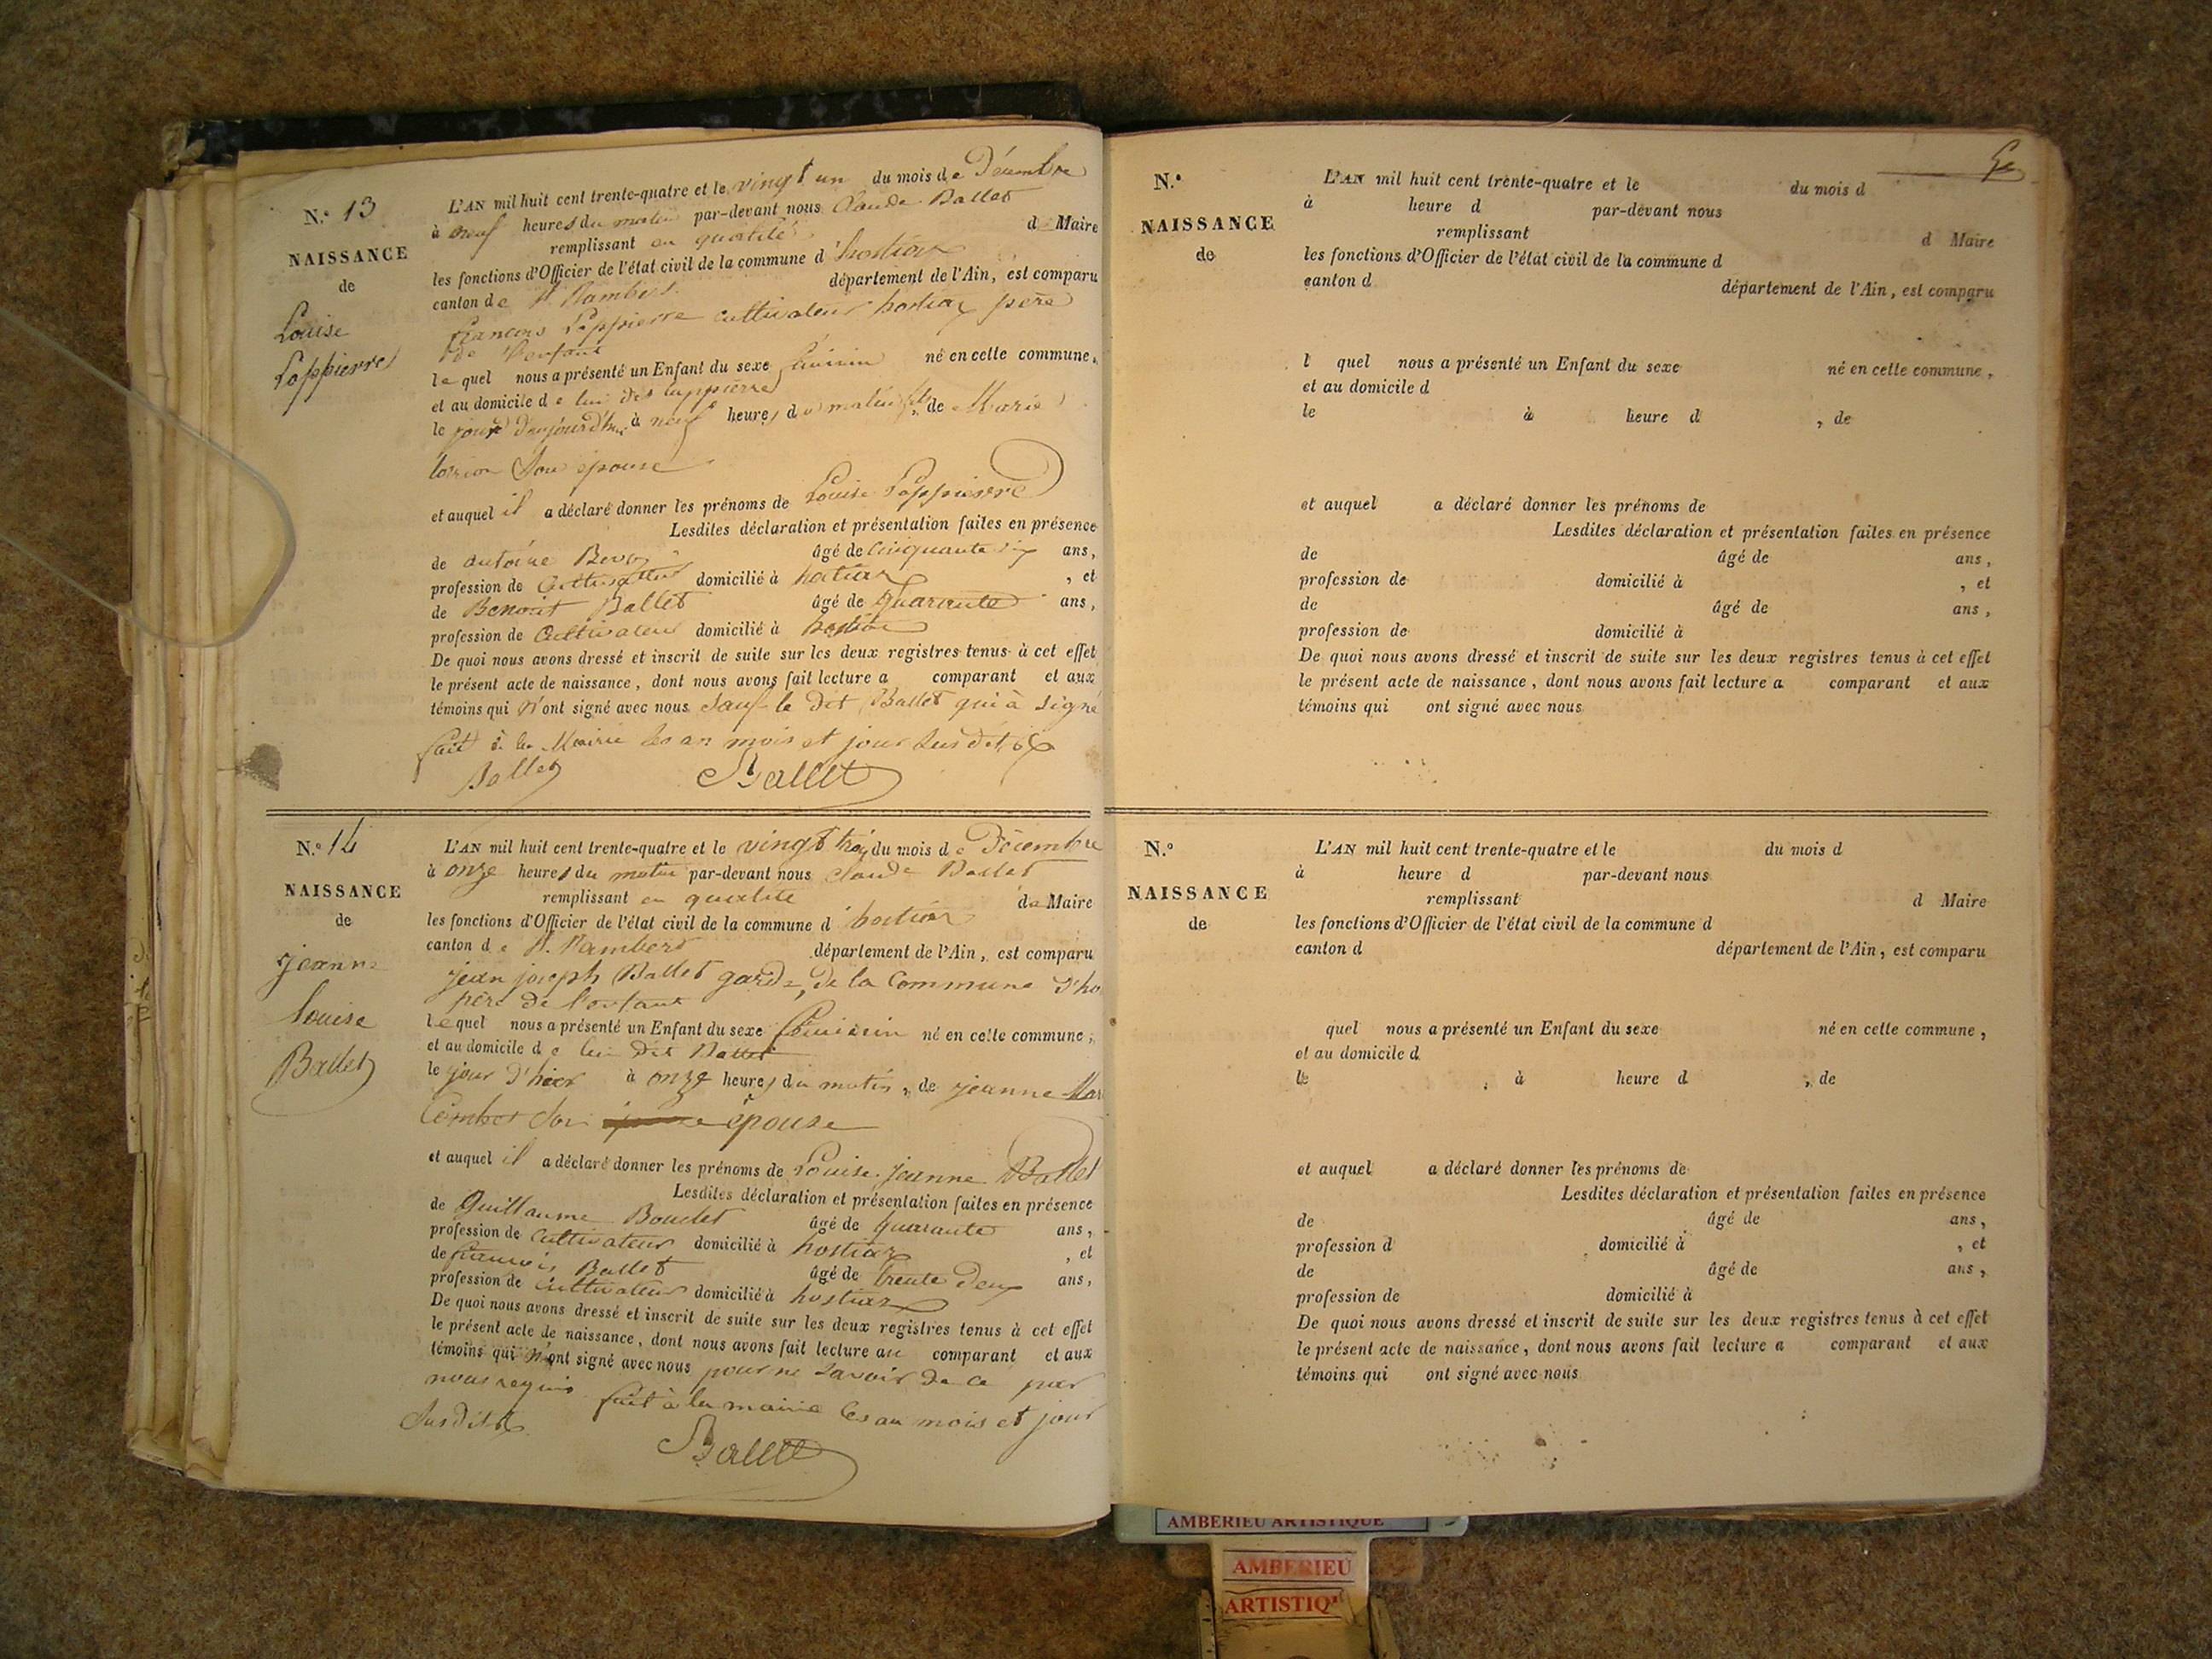 N.º 13
NAISSANCE
de
Louise
Lappierre
L'AN mil huit cent trente-quatre et le vingt un du mois de Décembre
à neuf heures du matin par-devant nous Claude Ballet
remplissant en qualité de Maire
les fonctions d'Officier de l'état civil de la commune d'hostiaz
canton de St Rambert département de l'Ain, est comparu
françois Lappierre cultivateur hostiaz père
de l'enfant
lequel nous a présenté un Enfant du sexe féminin né en celle commune,
et au domicile de lui dit lappierre
le jour d'aujourd'hui à neuf heures du matin, de Marie
son épouse
et auquel il a déclaré donner les prénoms de Louise Lappierre
Lesdites déclaration et présentation faites en présence
de antoine âgé de Cinquante six ans,
profession de Cultivateur domicilié à hostiaz , et
de Benoit Ballet âgé de Quarante ans,
profession de Cultivateur domicilié à hostiaz
De quoi nous avons dressé et inscrit de suite sur les deux registres tenus à cet effet
le présent acte de naissance, dont nous avons fait lecture a comparant et aux
témoins qui n'ont signé avec nous sauf le dit Ballet qui à signé
fait à la Mairie les an mois et jour susdit
Ballet Ballet
N.º 14
NAISSANCE
de
jeanne
louise
Ballet
L'AN mil huit cent trente-quatre et le vingt trois du mois de Décembre
à onze heures du matin par-devant nous claude Ballet
remplissant en qualité de Maire
les fonctions d'Officier de l'état civil de la commune d'hostiaz
canton de St Rambert département de l'Ain, est comparu
jean joseph Ballet garde de la Commune d'ho
père de l'enfant
lequel nous a présenté un Enfant du sexe féminin né en celle commune,
et au domicile de lui dit Ballet
le jour d'hier à onze heures du matin, de jeanne Mar
Combet son épouse
et auquel il a déclaré donner les prénoms de Louise jeanne Ballet
Lesdites déclaration et présentation faites en présence
de Guillaume Boudet âgé de Quarante ans,
profession de Cultivateur domicilié à hostiaz , et
de francois Ballet âgé de trente deux ans,
profession de Cultivateur domicilié à hostiaz
De quoi nous avons dressé et inscrit de suite sur les deux registres tenus à cet effet
le présent acte de naissance, dont nous avons fait lecture au comparant et aux
témoins qui n'ont signé avec nous pour ne savoir de ce par
nous requis fait à la mairie les an mois et jour
susdits
Ballet
N.º
NAISSANCE
de
L'AN mil huit cent trente-quatre et le du mois d
à heure d par-devant nous
remplissant d Maire
les fonctions d'Officier de l'état civil de la commune d
canton d département de l'Ain, est comparu
l quel nous a présenté un Enfant du sexe né en celle commune,
et au domicile d
le à heure d , de
et auquel a déclaré donner les prénoms de
Lesdites déclaration et présentation faites en présence
de âgé de ans,
profession de domicilié à , et
de âgé de ans,
profession de domicilié à
De quoi nous avons dressé et inscrit de suite sur les deux registres tenus à cet effet
le présent acte de naissance, dont nous avons fait lecture a comparant et aux
témoins qui ont signé avec nous
N.º
NAISSANCE
de
L'AN mil huit cent trente-quatre et le du mois d
à heure d par-devant nous
remplissant d Maire
les fonctions d'Officier de l'état civil de la commune d
canton d département de l'Ain, est comparu
quel nous a présenté un Enfant du sexe né en celle commune,
et au domicile d
le à heure d , de
et auquel a déclaré donner les prénoms de
Lesdites déclaration et présentation faites en présence
de âgé de ans,
profession d domicilié à , et
de âgé de ans,
profession de domicilié à
De quoi nous avons dressé et inscrit de suite sur les deux registres tenus à cet effet
le présent acte de naissance, dont nous avons fait lecture a comparant et aux
témoins qui ont signé avec nous
AMBERIEU ARTISTIQUE
AMBERIEU
ARTISTIQ